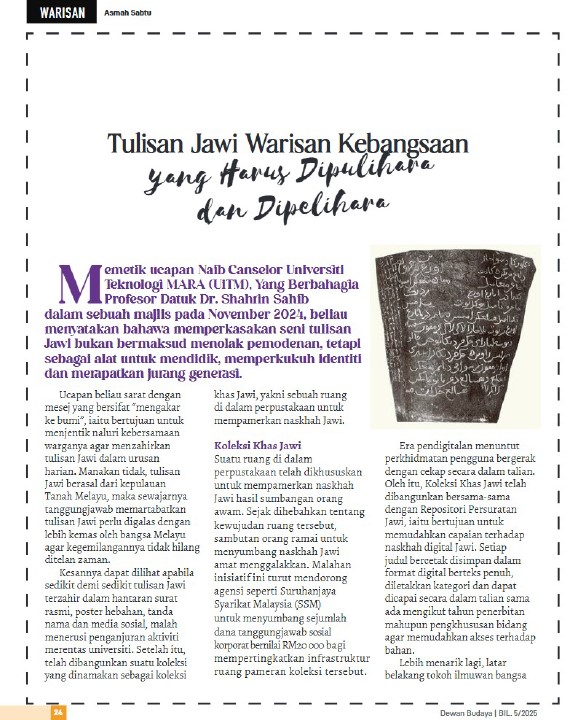 WARISAN
Asmah Sabtu
Tulisan Jawi Warisan Kebangsaan
yang Harus Dipulihara
dan Dipelihara
Memetik ucapan Naib Canselor Universiti
Teknologi MARA (UiTM), Yang Berbahagia
Profesor Datuk Dr. Shahrin Sahib
dalam sebuah majlis pada November 2024, beliau
menyatakan bahawa memperkasakan seni tulisan
Jawi bukan bermaksud menolak pemodenan, tetapi
sebagai alat untuk mendidik, memperkukuh identiti
dan merapatkan jurang generasi.
Ucapan beliau sarat dengan
mesej yang bersifat “mengakar
ke bumi”, iaitu bertujuan untuk
menjentik naluri kebersamaan
warganya agar menzahirkan
tulisan Jawi dalam urusan
harian. Manakan tidak, tulisan
Jawi berasal dari kepulauan
Tanah Melayu, maka sewajarnya
tanggungjawab memartabatkan
tulisan Jawi perlu digalas dengan
lebih kemas oleh bangsa Melayu
agar kegemilangannya tidak hilang
ditelan zaman.
Kesannya dapat dilihat apabila
sedikit demi sedikit tulisan Jawi
terzahir dalam hantaran surat
rasmi, poster hebahan, tanda
nama dan media sosial, malah
menerusi penganjuran aktiviti
merentas universiti. Setelah itu,
telah dibangunkan suatu koleksi
yang dinamakan sebagai koleksi
khas Jawi, yakni sebuah ruang
di dalam perpustakaan untuk
mempamerkan naskhah Jawi.
Koleksi Khas Jawi
Suatu ruang di dalam
perpustakaan telah dikhususkan
untuk mempamerkan naskhah
Jawi hasil sumbangan orang
awam. Sejak dihebahkan tentang
kewujudan ruang tersebut,
sambutan orang ramai untuk
menyumbang naskhah Jawi
amat menggalakkan. Malahan
inisiatif ini turut mendorong
agensi seperti Suruhanjaya
Syarikat Malaysia (SSM)
untuk menyumbang sejumlah
dana tanggungjawab sosial
korporat bernilai RM20 000 bagi
mempertingkatkan infrastruktur
ruang pameran koleksi tersebut.
Era pendigitalan menuntut
perkhidmatan pengguna bergerak
dengan cekap secara dalam talian.
Oleh itu, Koleksi Khas Jawi telah
dibangunkan bersama-sama
dengan Repositori Persuratan
Jawi, iaitu bertujuan untuk
memudahkan capaian terhadap
naskhah digital Jawi. Setiap
judul bercetak disimpan dalam
format digital berteks penuh,
diletakkan kategori dan dapat
dicapai secara dalam talian sama
ada mengikut tahun penerbitan
mahupun pengkhususan bidang
agar memudahkan akses terhadap
bahan.
Lebih menarik lagi, latar
belakang tokoh ilmuwan bangsa
24
Dewan Budaya | BIL. 5/2025